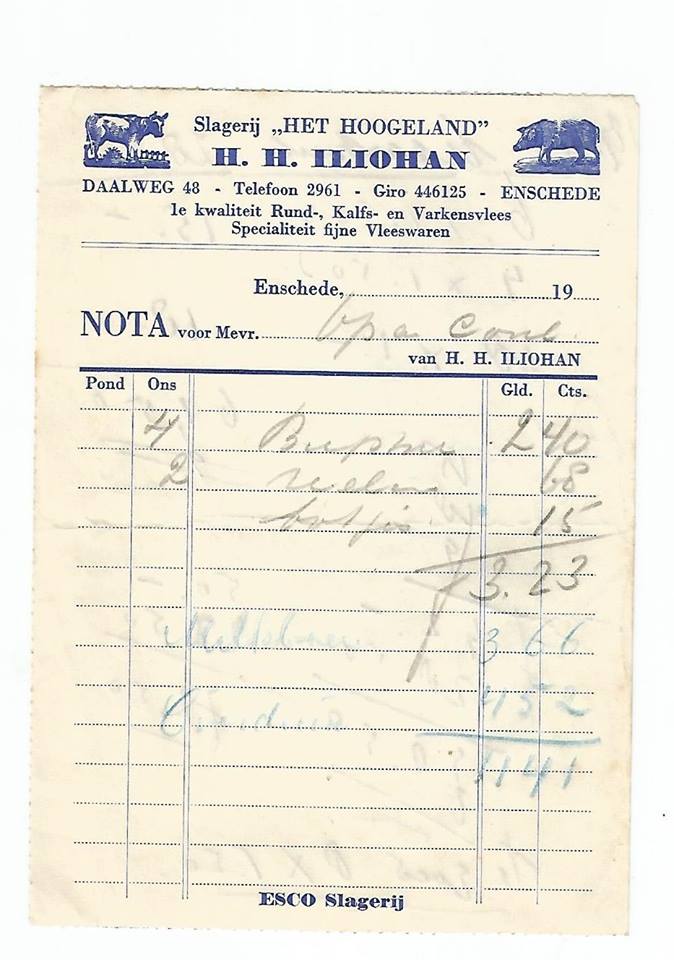 Slagerij „HET HOOGELAND”
H. H. ILIOHAN
DAALWEG 48 - Telefoon 2961 - Giro 446125 - ENSCHEDE
1e kwaliteit Rund-, Kalfs- en Varkensvlees
Specialiteit fijne Vleeswaren
Enschede, 19
NOTA voor Mevr.
van H. H. ILIOHAN
Pond Ons Gld. Cts.
4 2 40
2 68
botjes 15
3.23
3 66
4 52
11 41
ESCO Slagerij